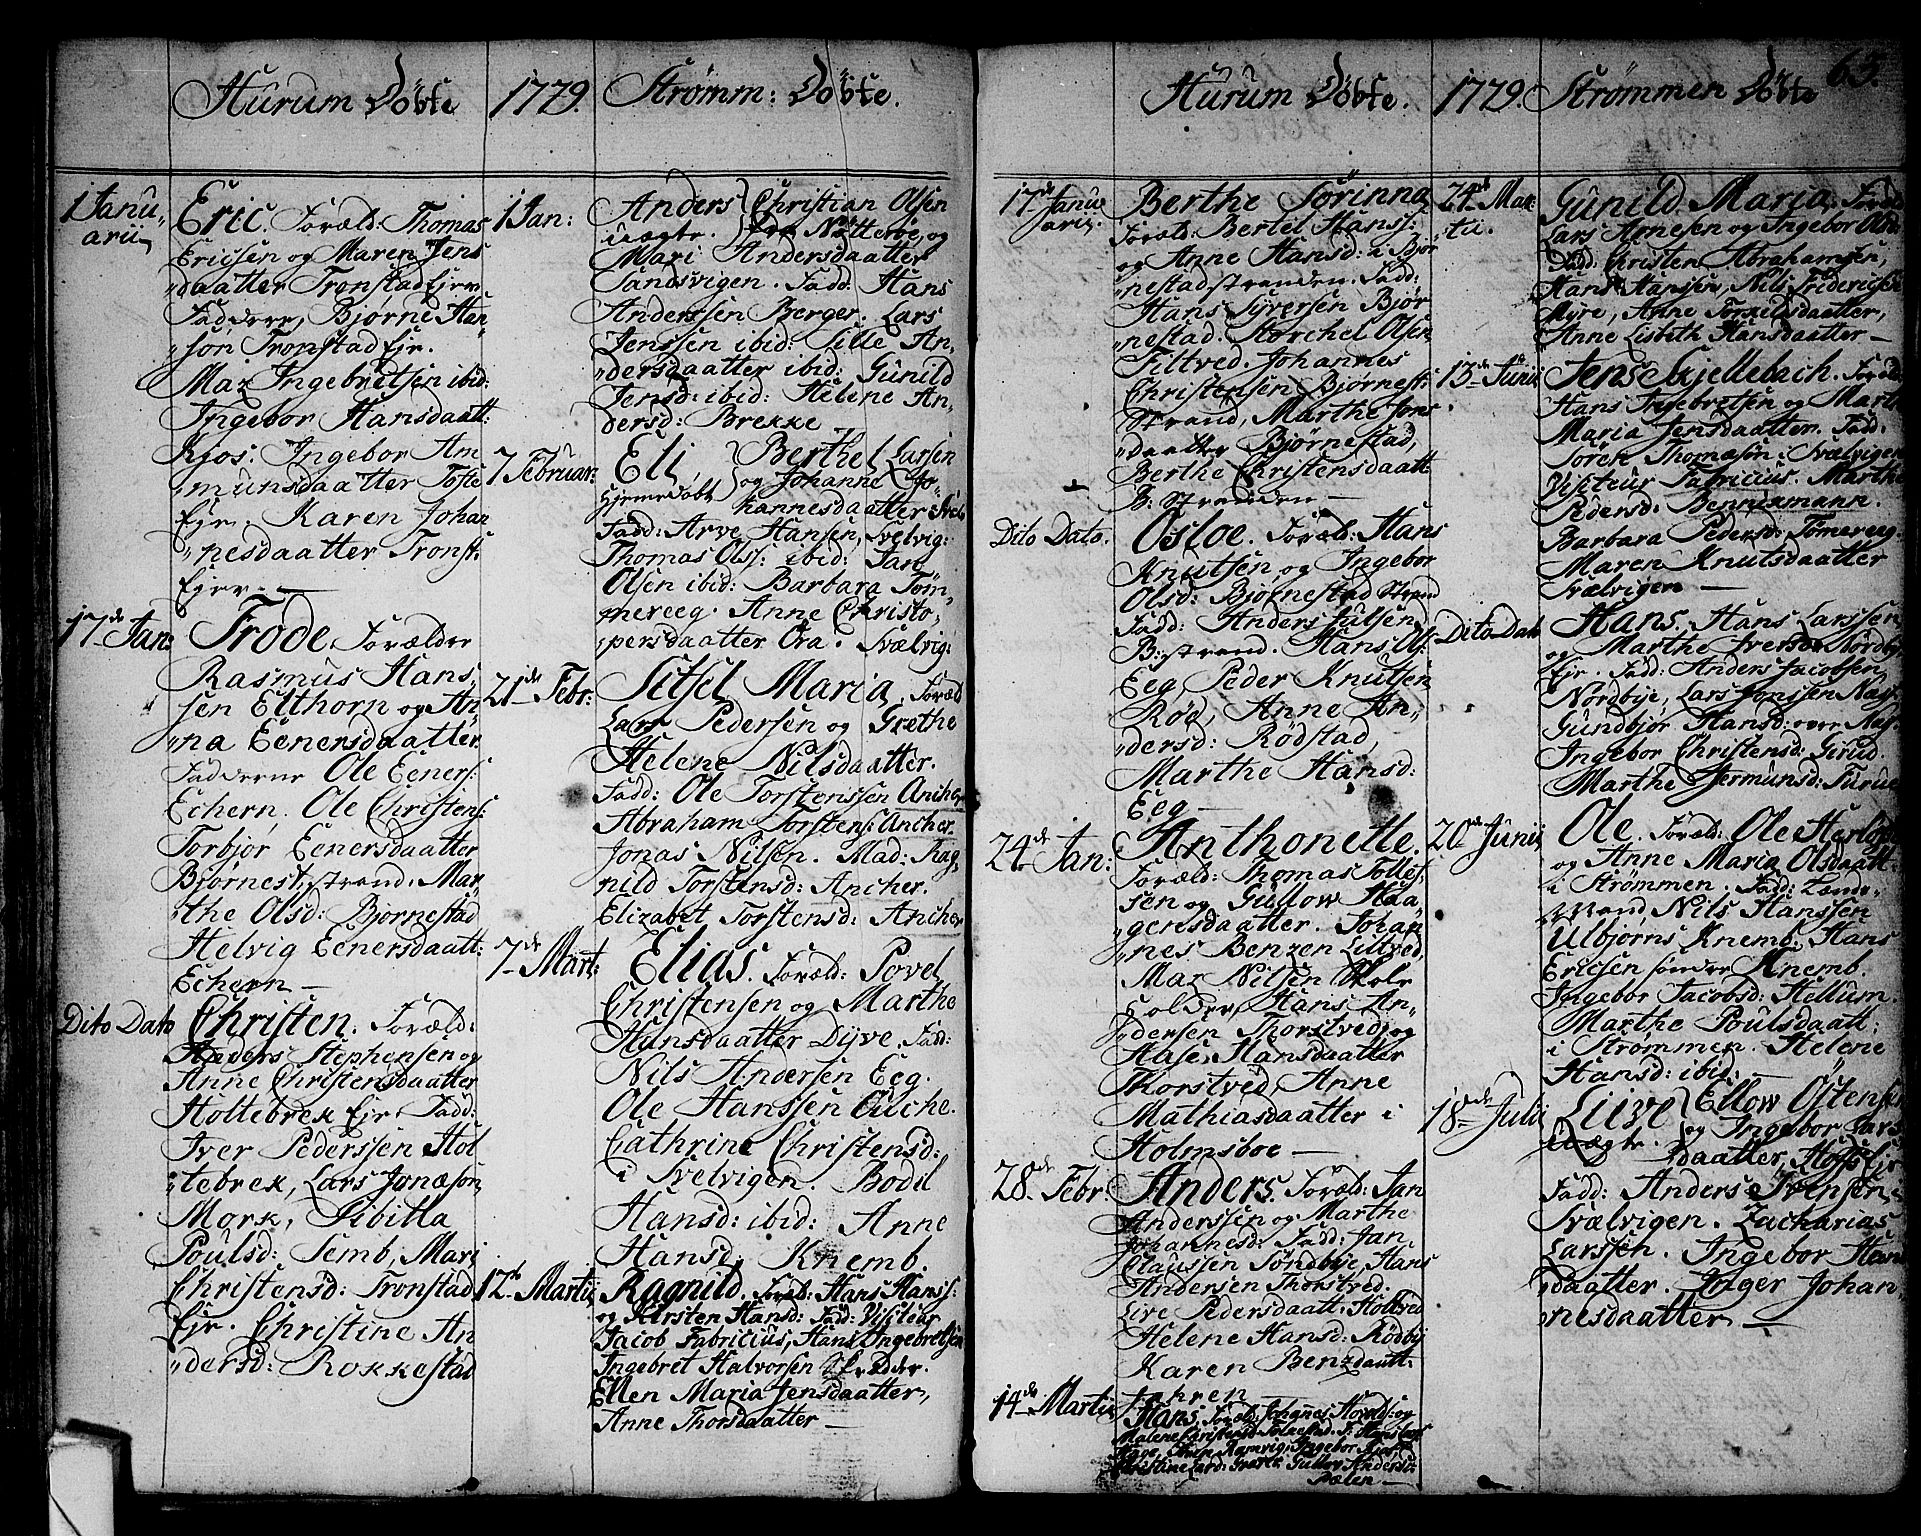 Hurum Döbte
1779.
Strømm: Döbte.
1 Janu-
arii
Eric. Foræld: Thomas
Ericsen og Maren Jens
daatter Tronstad Ejer
Faddere, Bjørne Han-
søn Tronstad Ejr.
Maz Ingebretsen ibid:
Ingebor Hansdaatt:
Kjos: Ingebor Am
munsdaatter Tofte
Ejr. Karen Johan
nesdaatter Tronst:
Ejer
17de Jan:
Frode. Forældre
Rasmus Hans,
sen Elthorn og An
na Eenersdaatter
Fadderne Ole Eeners:
Echern. Ole Christens:
Torbjør Eenersdaatter
Bjørnest, strand. Mar,
the Olsd: Bjørnestad
Helvig Eenersdaatt:
Echern
Dito Dato
Christen. Foræld:
Anders Stephensen og
Anne Christensdaatter
Holtebrek Ejr. Fadd:
Iver Pederssen Hol
tebrek, Lars Jonæson
Mørk, Sibilla
Poulsd: Semb, Mari
Christensd: Tronstad
Ejr. Christine An
dersd: Rokkestad
1 Jan:
Anders Christian Olsen
uægte. fra Nøtterøe, og
Mari Andersdaatter
Sandsvigen. Fadd: Hans
Anderssen Berger. Lars
Jenssen ibid: Sille An,
dersdaatter ibid: Gunild
Jensd: ibid: Helene An,
dersd: Brekke
7 Februar:
Eli, Berthel Larsen
Hjemedøbt og Johanne Jo-
hannesdaatter
Fadd: Arve Hansen, Svelvig:
Thomas Olss: ibid: Jan
Olsen ibid: Barbara Töm,
mereeg. Anne Christo,
persdaatter Ora. Svælvig:
21de Febr:
Sitsel Maria. Foræld
Lars Pedersen og Grethe
Helene Nilsdaatter.
Fadd: Ole Torstenssen Ancher
Abraham Torstens: Ancher.
Jonas Nilsen. Mad: Rag,
nild Torstensd: Ancher.
Elizabet Torstensd: Ancher
7de Mart:
Elias. Foræld: Povel
Christensen og Marthe
Hansdaatter Dyve. Fadd:
Nils Andersen Eeg.
Ole Hanssen Ouche.
Cathrine Christensd:
i Svelvigen. Bodil
Hansd: ibid: Anne
Hansd. Knemb.
12te Martii
Ragnild. Foræld: Hans Hanss:
og Kirsten Hansd: Fadd: Visiteur
Jacob Fabricius, Hans Ingebretsen
Ingebret Halvorsen
Ellen Maria Jensdaatter,
Anne Thorsdaatter
Hurum Döbte.
1779.
Strømmen Döbte
65.
17de Janu
arii.
Berthe Sørinna
Foræld: Bertel Hanss:
og Anne Hansd: i Bjør
nestadstranden. Fadd:
Hans Syversen Bjør
nestad. Torchel Olsen
Filtved. Johannes
Christensen Bjørnest:
Strand, Marthe Jons
daatter Bjørnestad,
Berthe Christensdaatt:
B: Stranden
Dito Dato.
Osloe. Foræld: Hans
Knutsen og Ingebor
Olsd: Bjørnestad Strand
Fadd: Anders Julsen,
B: strand. Hans Ols:
Eeg, Peder Knutsen
Röd, Anne An,
dersd: Rödstad,
Marthe Hansd:
Eeg
24de Jan:
Anthonette.
Foræld: Thomas Tolles,
sen og Gullow Haa
gensdaatter. Johan
nes Benzen Filtved.
Maz Nilsen Skole
holder, Hans An,
dersen Thorstved, og
Aase Hansdaatter
Thorstved, Anne
Mathiasdaatter i
Holmsboe
28de Febr:
Anders. Foræld: Jan
Anderssen og Marthe
Johannesd: Fadd: Jan
Claussen Søndbye, Hans
Andersen Thorstved.
Live Pedersdaatt: Holtved
Helene Hansd: Rödby
Karen Benzdaatt:
Sahren
14de Martii
Hans. Foræld: Johannes Hovelds: og
Malene Christensd:
Christine Larsd: Gullov Andersd:
24de Mar
tii.
Gunild Maria. Foræld
Lars Arnesen og Ingebor Olsd:
Fadd: Christen Abrahamsen,
Hans Hansen, Nils Fridericsen
Myre, Anne Torkilsdaatter,
Anne Lisbeth Hansdaatter
13de Junii
Jens Skjellebach. Foræld
Hans Ingebretsen og Marth
Maria Jensdaatter. Fadd:
Soren Thomæsøn i Svælvigen
Visiteur Fabricius. Marthe
Pedersd: Bennexmann.
Barbara Pedersd: Tömereeg.
Maren Knutsdaatter
Svælvigen
Dito Dato
Hans. Hans Larssen
og Marthe Iversd: Nordby
Ejr. Fadd: Anders Jacobsen
Nordbye, Lars Jonssen Næs
Gundbjør Hansd: over Næs
Ingebor Christensd:
Marthe Germunsd:
20de Junii
Ole. Foræld: Ole Herlof
og Anne Maria Olsdaatt:
i Strømmen. Fadd: Lænds,
Mand Nils Hanssen
Ulbjørns Knemb. Hans
Ericsen sønder Knemb.
Ingebor Jacobsd: Hellum.
Marthe Poulsdaatt:
i Strømmen. Helene
Hansd: ibid:
18de Juli
Live Ellow Östensen
uægte. og Ingebor Lars
daatter,
Fadd: Anders Svensen
Svælvigen. Zacharias
Larssen. Ingebor Hans
daatter. Inger Johan
nesdaatter